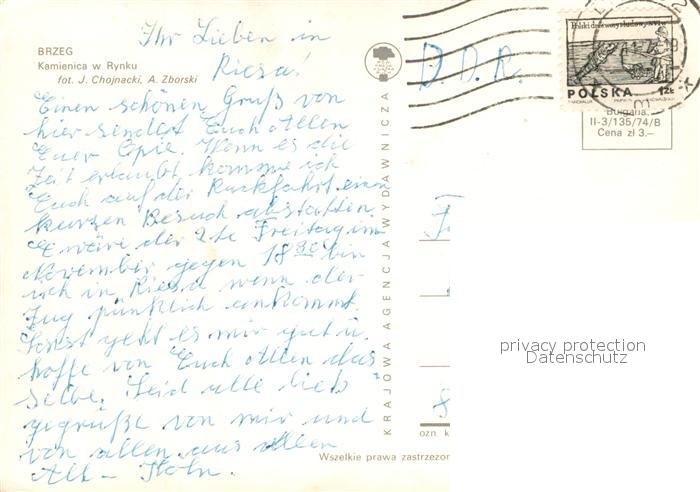 BRZEG
Kamienica w Rynku
fot. J. Chojnacki, A. Zborski
Ihr Lieben in
Riesa!
Einen schönen Gruß von
hier sendet Euch allen
Euer Opie. Wenn es die
Zeit erlaubt komme ich
Euch auf der Rückfahrt einen
kurzen Besuch abstatten.
E wäre der 2te Freitag im
November gegen 18 30 bin
ich in Riesa wenn der
Zug pünklich ankommt.
Sonst geht es mir gut u.
hoffe von Euch allen das
Selbe. Seid alle lieb
gegrüße von mir und
von allen aus allen
Alt-
KRAJOWA AGENCJA WYDAWNICZA
D.D.R.
POLSKA 1ZŁ
Bułgaria.
II-3/135/74/B
Cena zł 3.—
privacy protection
Datenschutz
8
ozn. k
Wszelkie prawa zastrzeżon